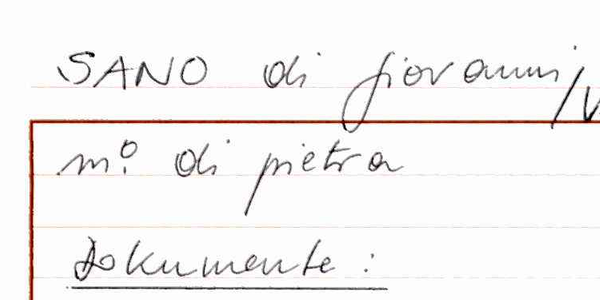 SANO di giovanni/V
mº di pietra
Dokumente: